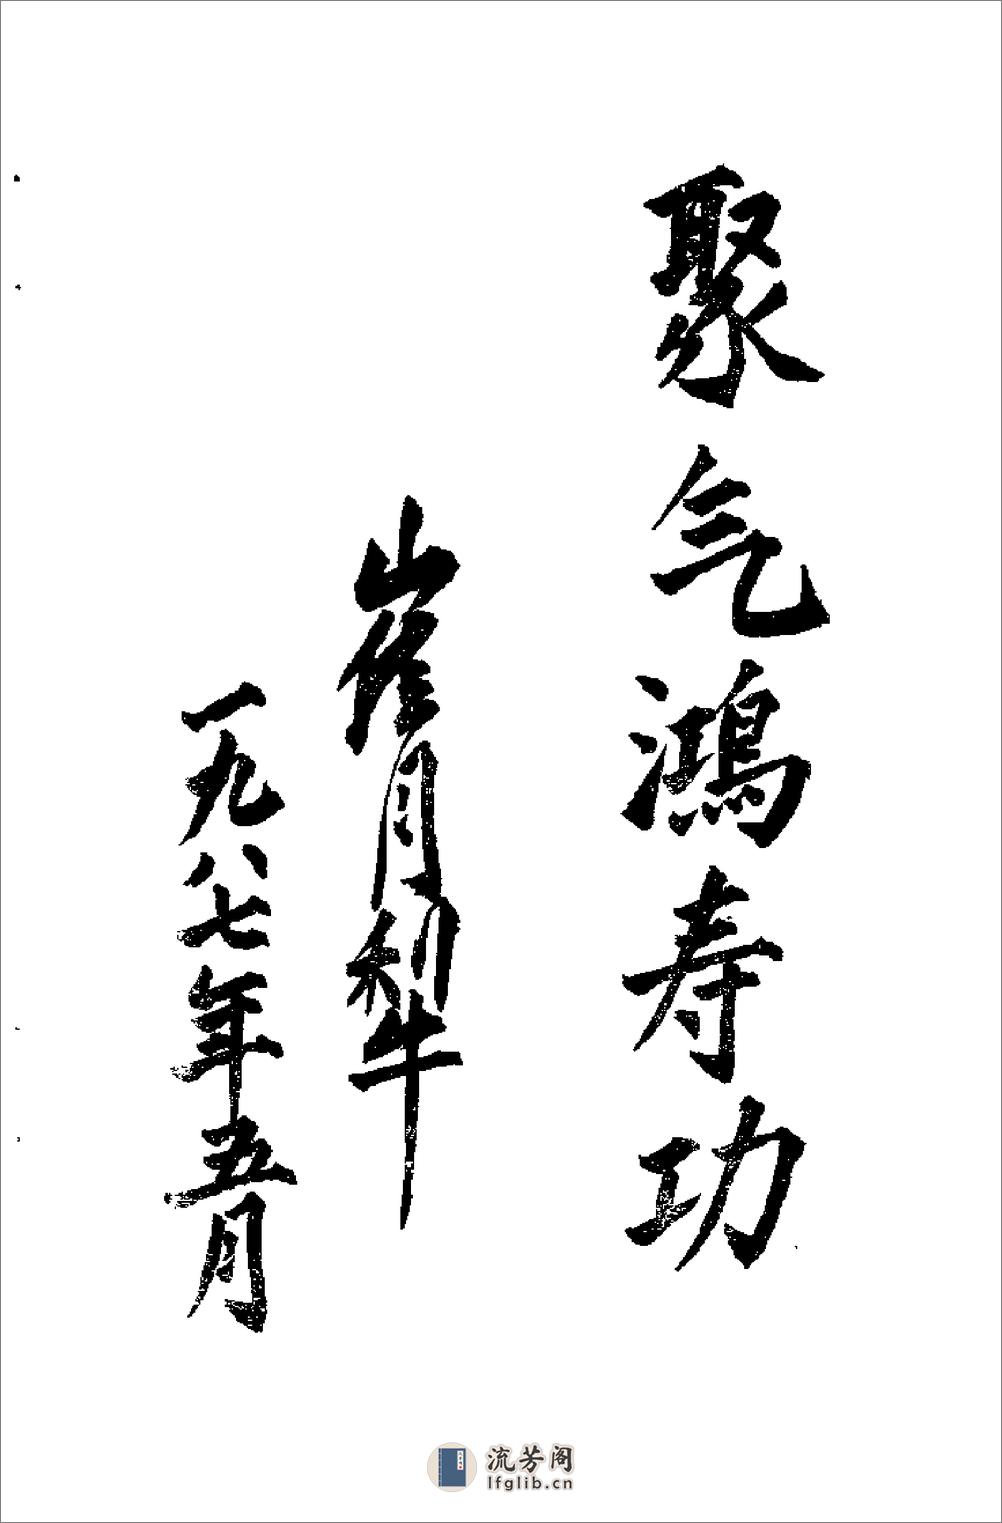 聚气鸿寿功
崔月犁
一九八七年五月
流芳阁
lfglib.cn